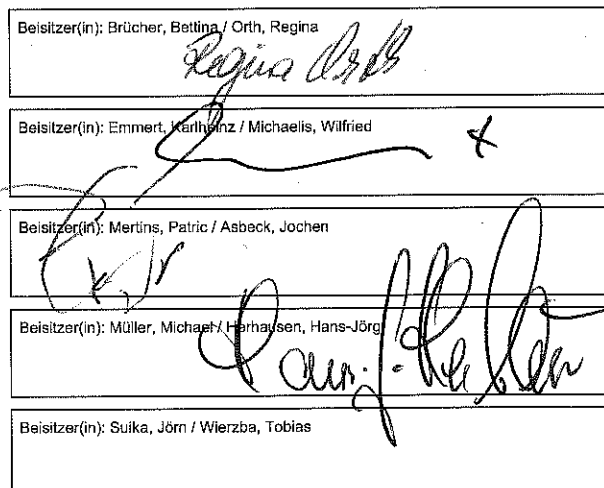 Beisitzer(in): Brücher, Bettina / Orth, Regina
Regina Orth
Beisitzer(in): Emmert, Karlheinz / Michaelis, Wilfried
Beisitzer(in): Mertins, Patric / Asbeck, Jochen
Beisitzer(in): Müller, Michael / Herhausen, Hans-Jörg
Beisitzer(in): Suika, Jörn / Wierzba, Tobias